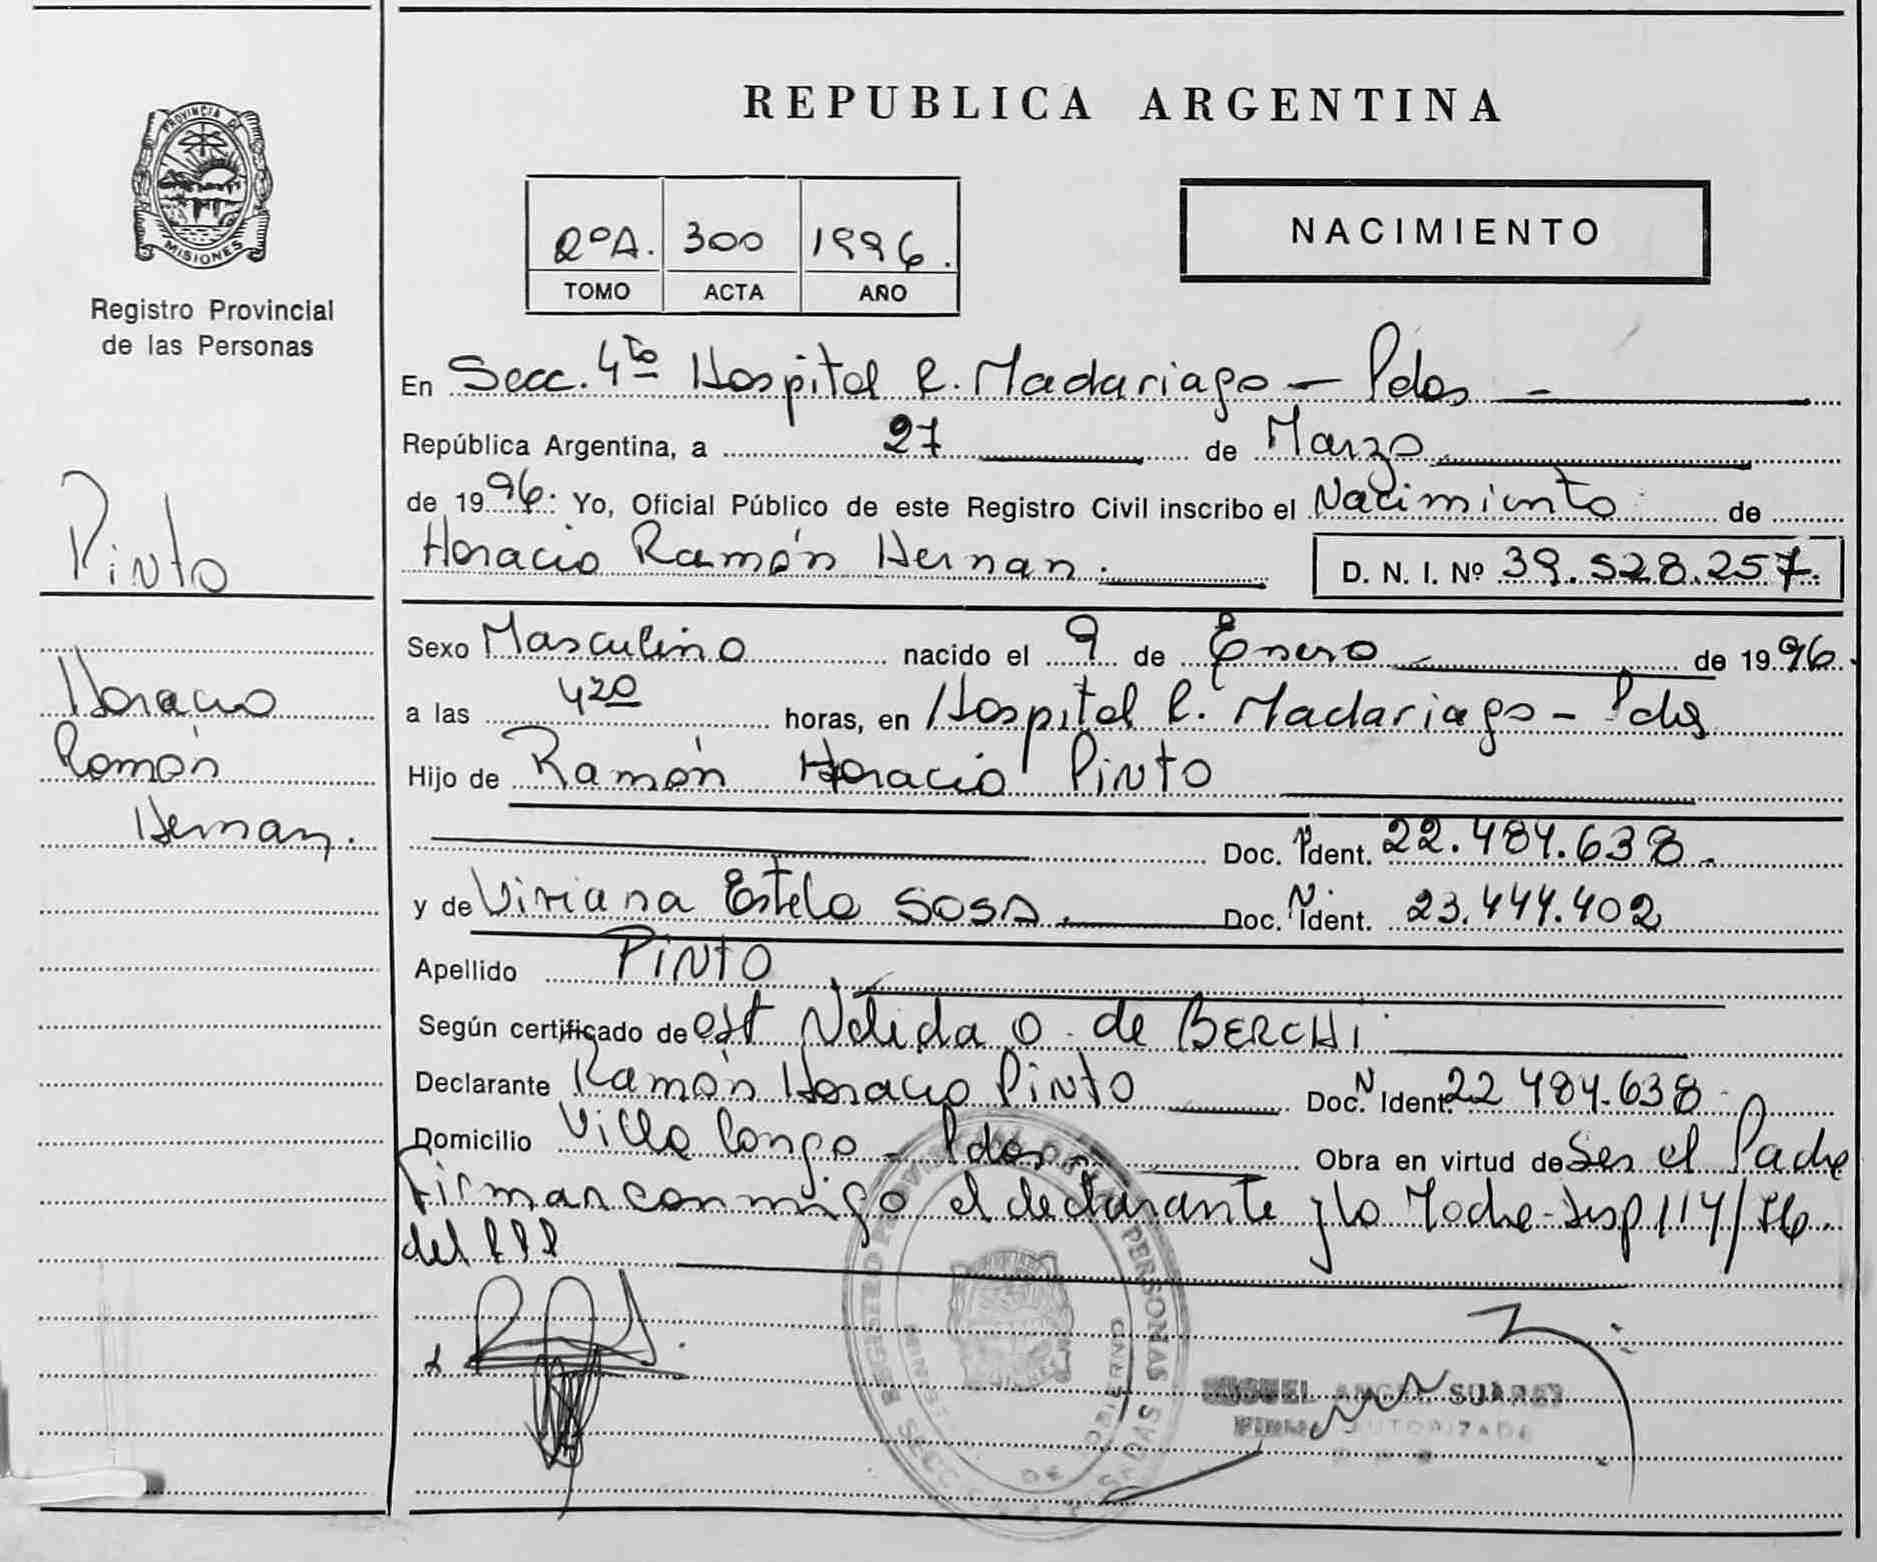 PROVINCIA DE
MISIONES
Registro Provincial
de las Personas
Pinto
Horacio
Ramón
Hernan.
REPUBLICA ARGENTINA
2ºA. 300 1996.
TOMO ACTA AÑO
NACIMIENTO
En Secc. 4to Hospital R. Madariaga - Pdas -
República Argentina, a 27 de Marzo
de 1996. Yo, Oficial Público de este Registro Civil inscribo el Nacimiento de
Horacio Ramón Hernan. D. N. I. Nº 39.528.257.
Sexo Masculino nacido el 9 de Enero de 1996.
a las 420 horas, en Hospital R. Madariaga - Pdas
Hijo de Ramón Horacio Pinto
Doc. Ident. 22.484.638.
y de Viviana Estela SOSA. Doc. Ident. 23.444.402
Apellido PINTO
Según certificado de obst Nelida O. de BERCHI
Declarante Ramón Horacio Pinto Doc. N Ident. 22 484.638
Domicilio Villa Longa - Pdas - Obra en virtud de Ser el Padre
Firman conmigo el declarante y la Madre - Disp 114/86.
del RPP
REGISTRO PROVINCIAL DE LAS PERSONAS
MIGUEL ANGEL SUAREZ
FIRMA AUTORIZADA